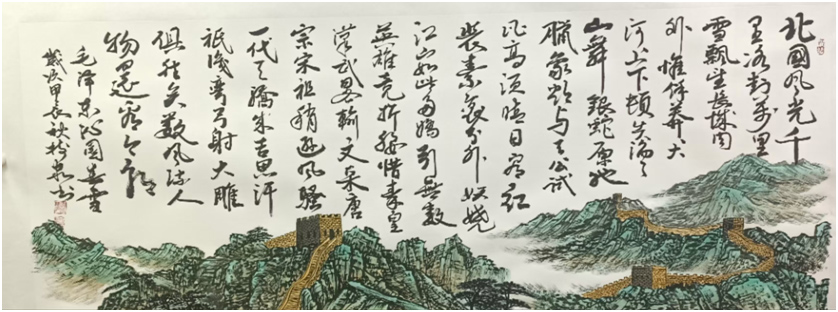 北國风光千
里冰封萬里
雪飘望長城内
外惟馀莽々大
河上下頓失滔々
山舞银蛇原驰
腊象欲与天公试
比高须晴日看红
装素裹分外妖娆
江山如此多娇引無数
英雄竞折腰惜秦皇
漢武略输文采唐
宗宋祖稍逊风骚
一代天骄成吉思汗
祇识弯弓射大雕
俱往矣数风流人
物還看今朝
毛泽东沁园春雪
歲次甲辰秋